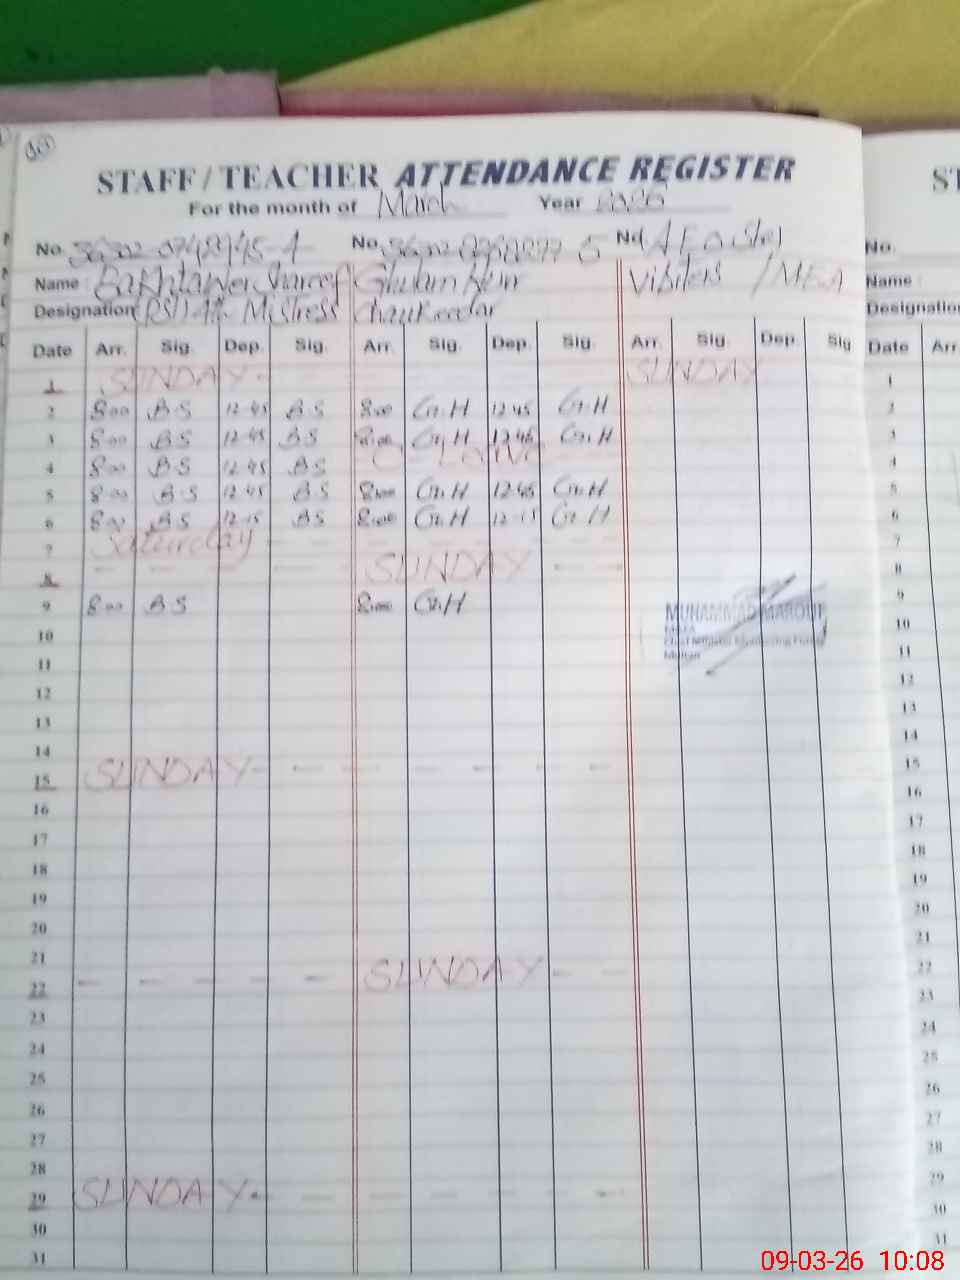 STAFF / TEACHER ATTENDANCE REGISTER ST
For the month of March Year 2026
No. No. No. No.
Name : Bakhtawer Shareef Ghulam Visiters / MEA Name :
Designation (PST) Mistress Chaukeedar Designation
Date Arr. Sig. Dep. Sig. Arr. Sig. Dep. Sig. Arr. Sig. Dep. Sig Date Arr.
1 SUNDAY SUNDAY 1
2 8:00 B.S 12:45 B.S 8:00 G.H 12:45 G.H 2
3 8:00 B.S 12:45 B.S 8:00 G.H 12:45 G.H 3
4 8:00 B.S 12:45 B.S 4
5 8:00 B.S 12:45 B.S 8:00 G.H 12:45 G.H 5
6 8:00 B.S 12:15 B.S 8:00 G.H 12:15 G.H 6
7 Saturday 7
8 SUNDAY 8
9 8:00 B.S 8:00 G.H MUHAMMAD MAROUF 9
10 10
11 Multan 11
12 12
13 13
14 14
15 SUNDAY 15
16 16
17 17
18 18
19 19
20 20
21 21
22 SUNDAY 22
23 23
24 24
25 25
26 26
27 27
28 28
29 SUNDAY 29
30 30
31 31
09-03-26 10:08